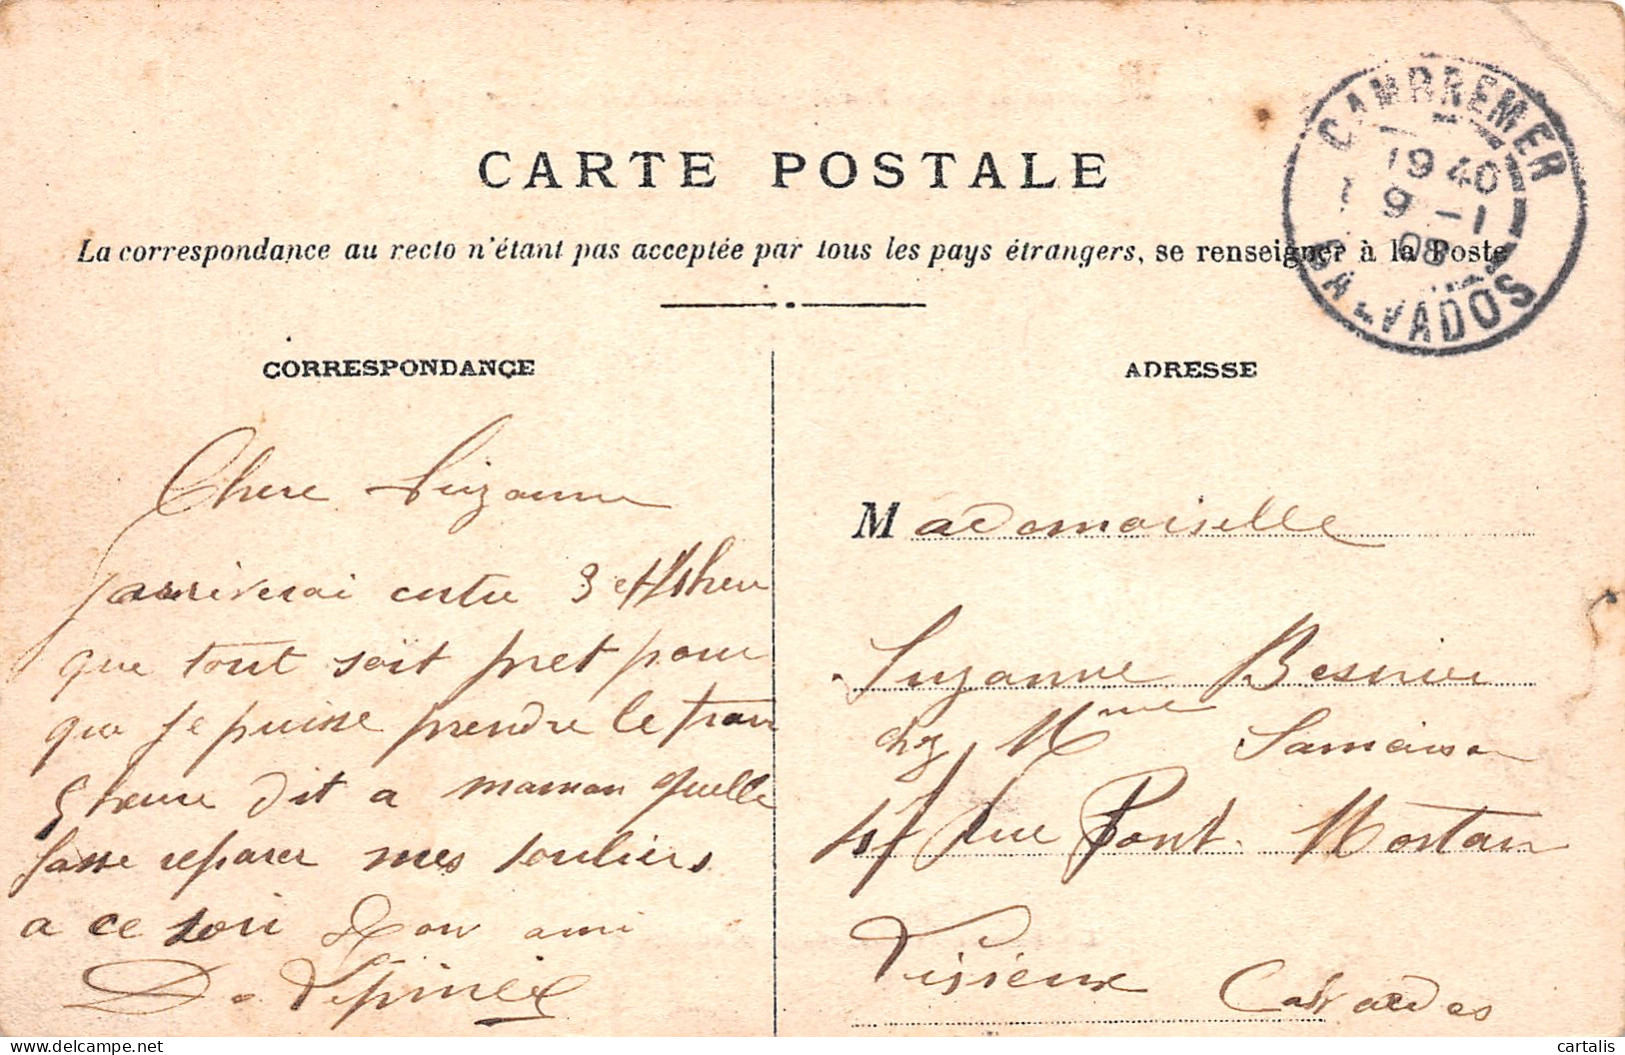 CARTE POSTALE
La correspondance au recto n'étant pas acceptée par tous les pays étrangers, se renseigner à la Poste
CAMBREMER
19 40
9 -1
08
CALVADOS
CORRESPONDANCE
Chere Suzanne
J'arriverai entre 3 et 4 heu
que tout soit pret pour
que je puisse prendre le train
5 heure dit a maman quelle
fasse reparer mes souliers
a ce soir ton ami
D. Lépinei
ADRESSE
Mademoiselle
Suzanne Besnier
chez Mme Samaison
47 rue Pont Mortain
Lisieux Calvados
cartalis